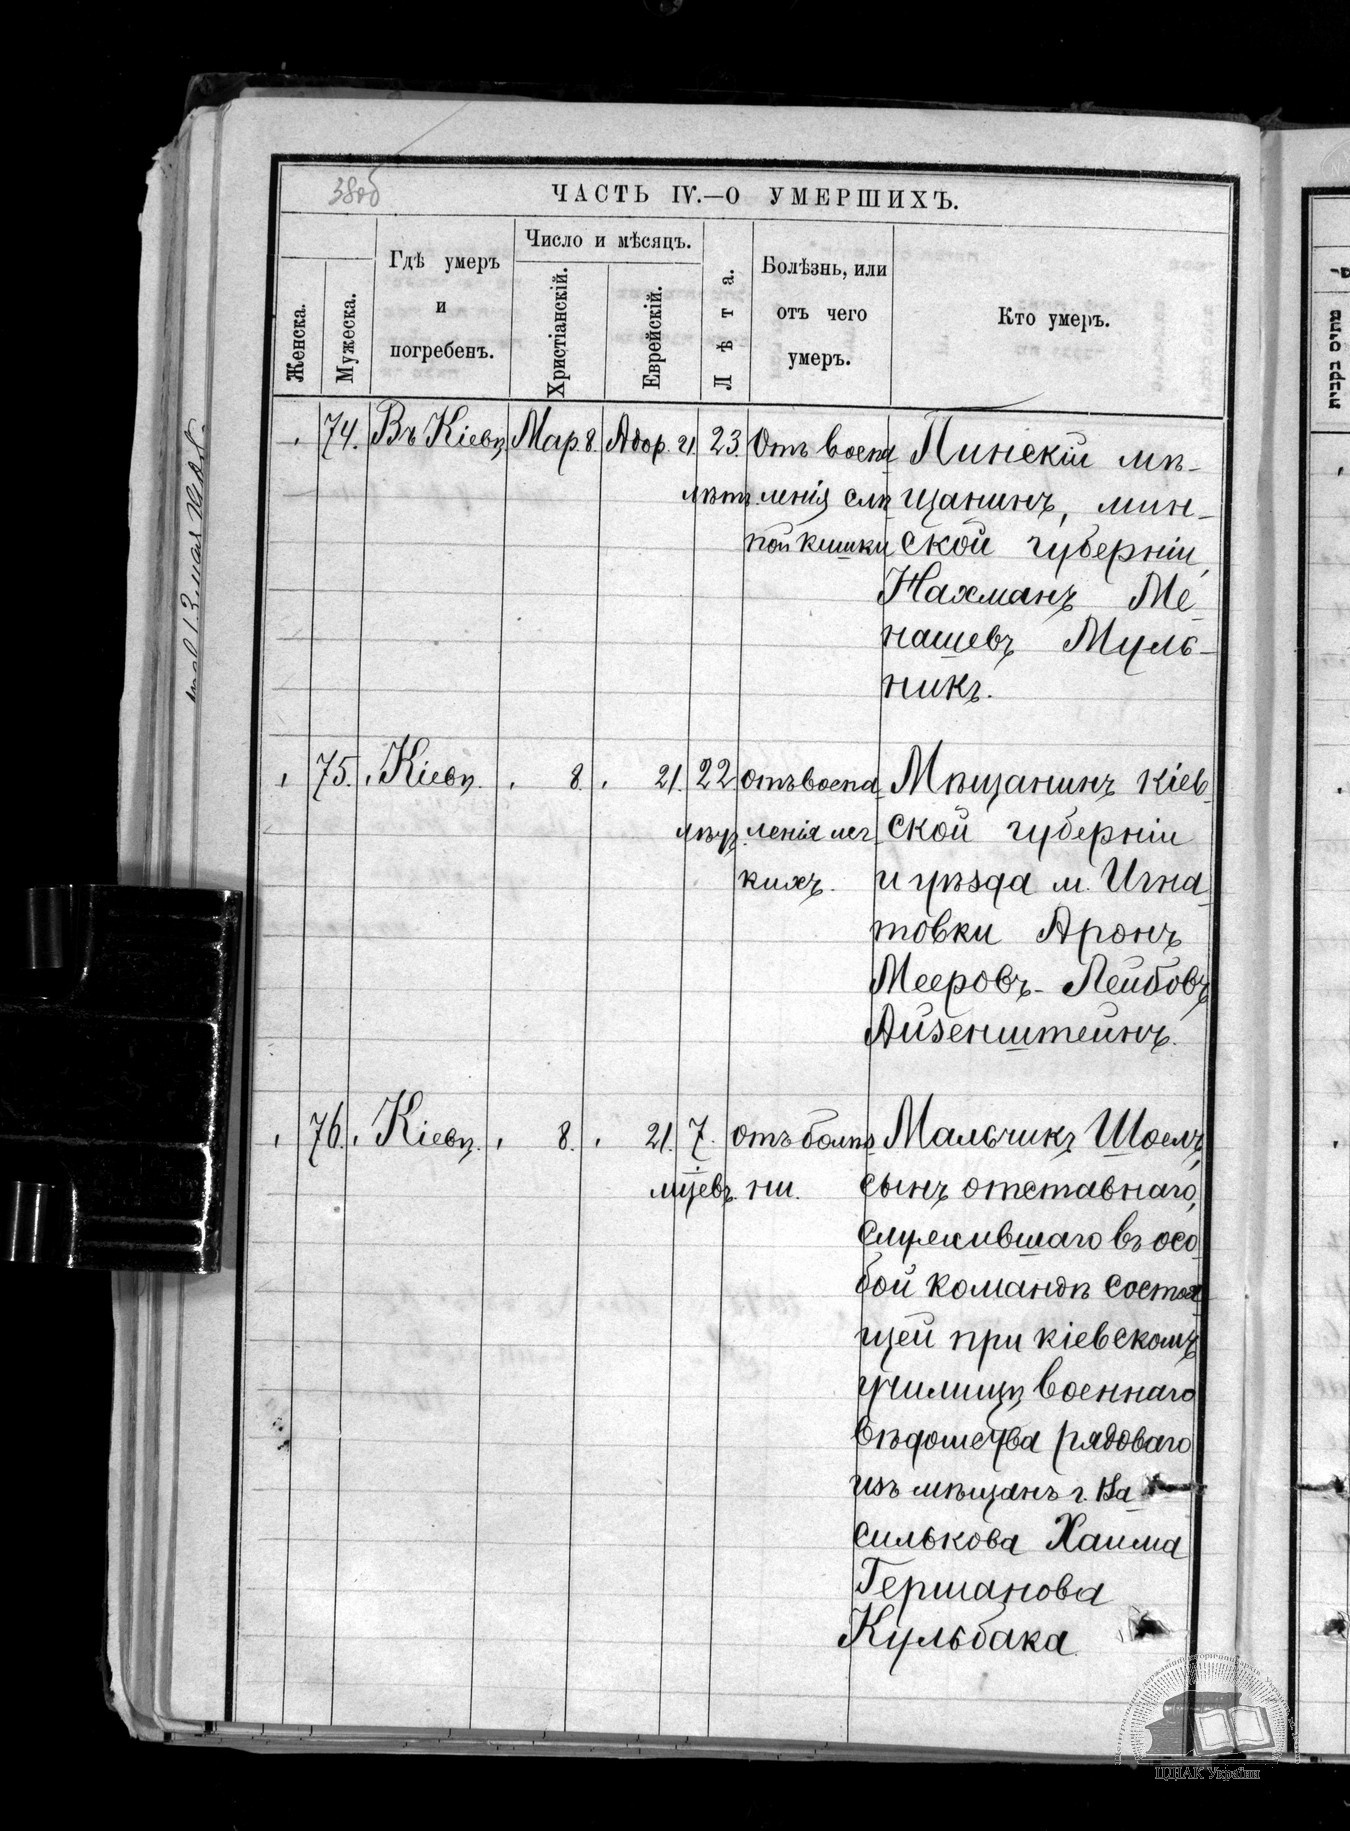 38об
ЧАСТЬ IV.—О УМЕРШИХЪ.
Женска.
Мужеска.
Гдѣ умеръ
и
погребенъ.
Число и мѣсяцъ.
Христіанскій.
Еврейскій.
Лѣта.
Болѣзнь, или
отъ чего
умеръ.
Кто умеръ.
74. Въ Кіевѣ Мар. 8. Адор. 21. 23. Отъ воспа- Пинскій мѣ-
лѣтъ. ленія слѣ- щанинъ, мин-
пой кишки ской губерніи,
Нахманъ Ме-
нашевъ Муль-
никъ.
75. Кіевѣ. 8. 21. 22 отъ воспа- Мѣщанинъ кіев-
ленія лег- ской губерніи
кихъ. и уѣзда м. Игна-
товки Аронъ
Мееровъ-Лейбовъ
Айзенштейнъ.
76. Кіевѣ. 8. 21. 7. отъ болѣз- Мальчикъ Шоелъ,
мцевъ. ни. сынъ отставнаго,
служившаго въ осо-
бой командѣ состоя-
щей при кіевскомъ
училищѣ военнаго
вѣдомства рядоваго
изъ мѣщанъ г. Ва-
силькова Хаима
Гершанова
Кульбака.
מתים בקבית
ЦДІАК України